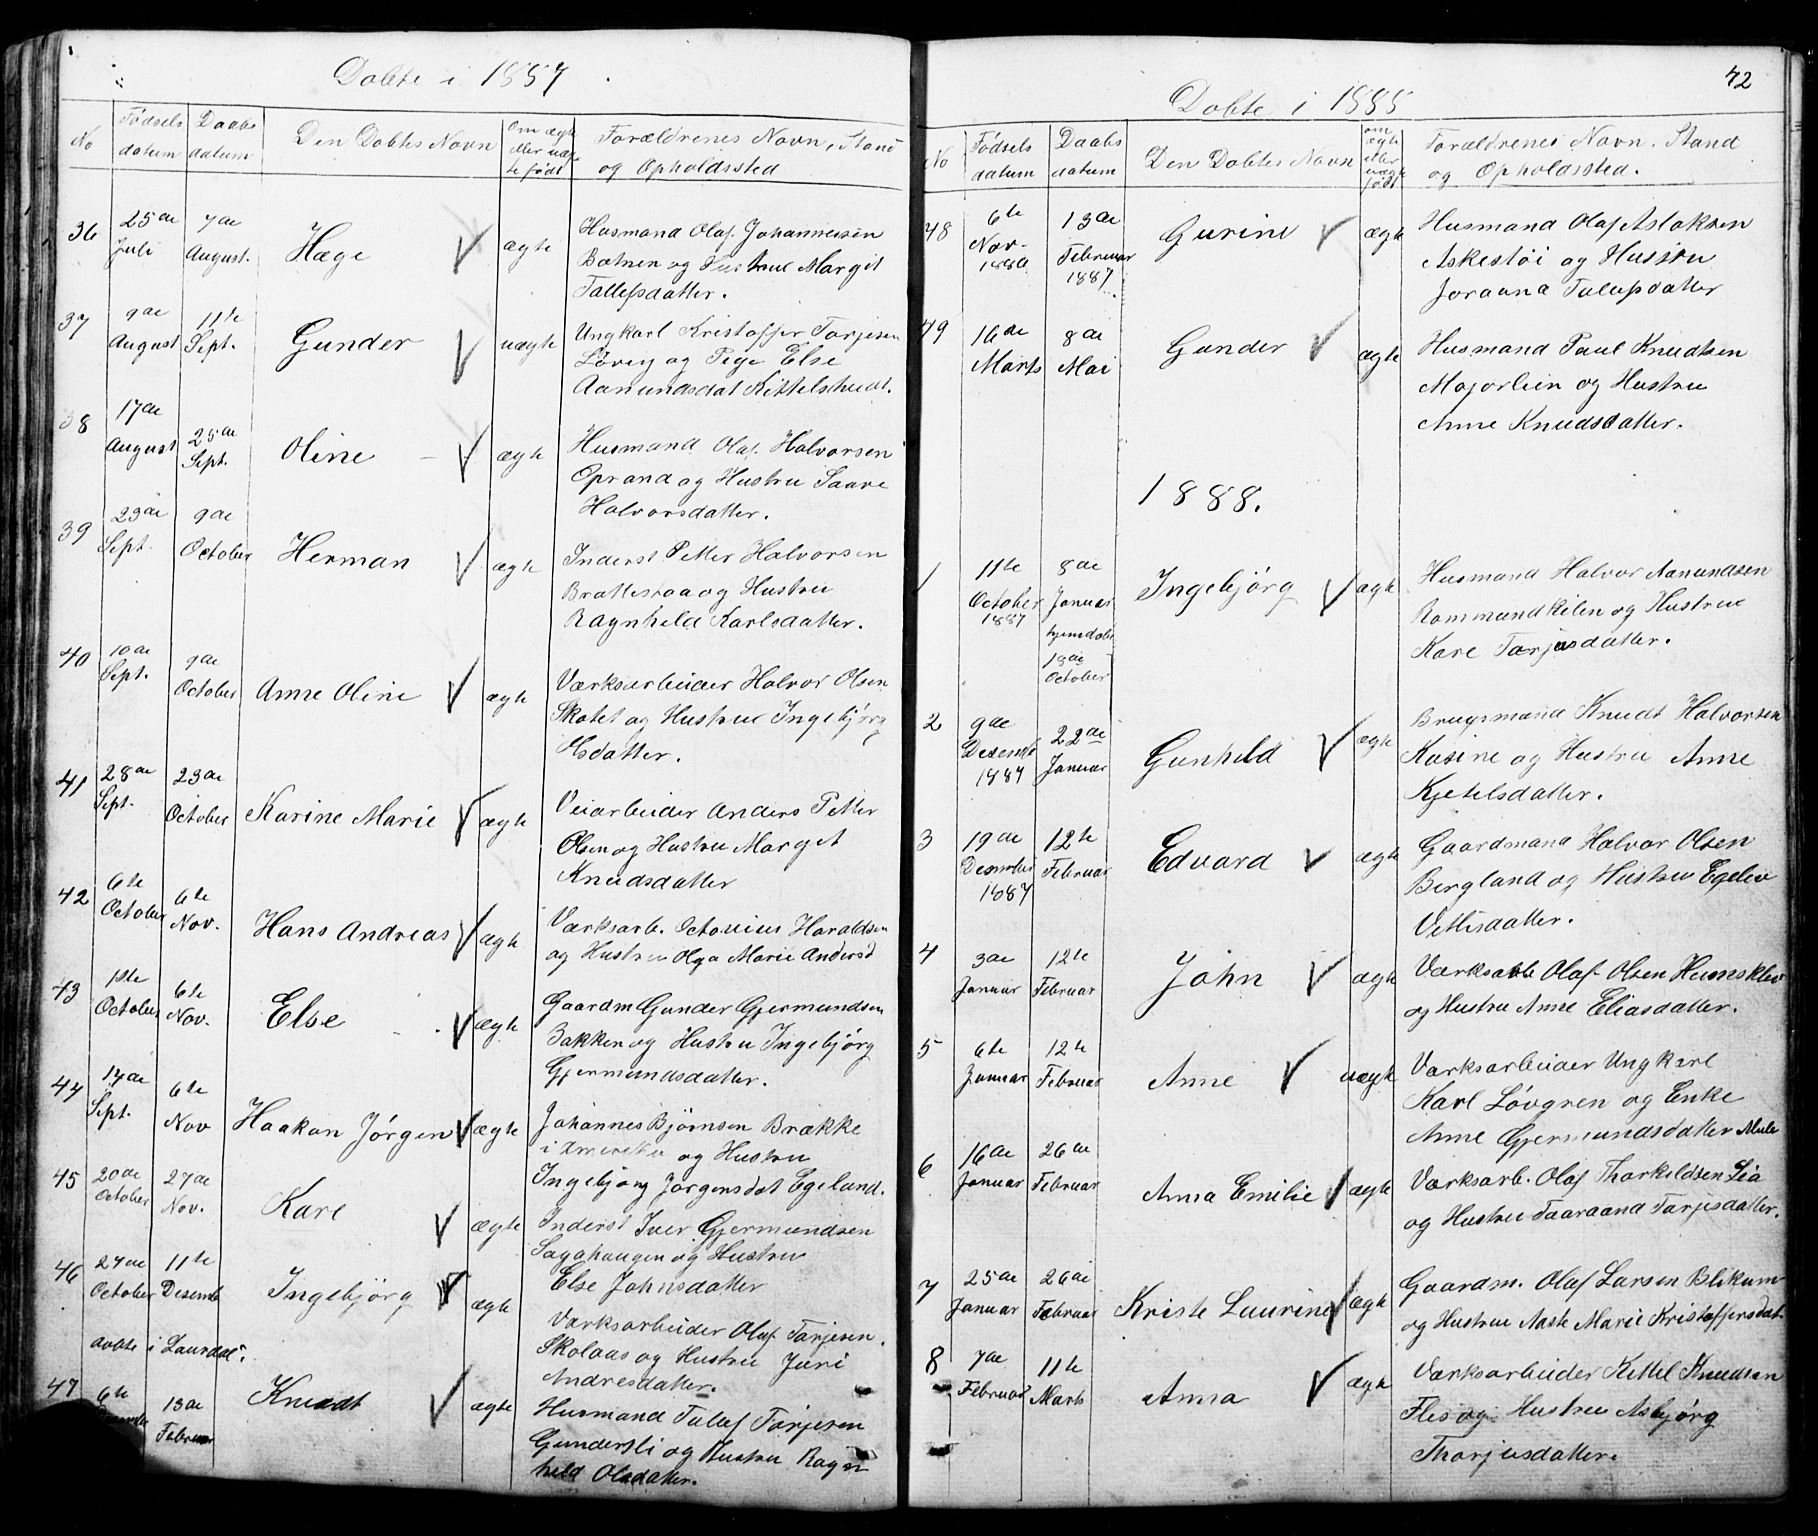 Døbte i 1887
No
Fødsels datum
Daabs datum
Den Døbtes Navn
Om ægte eller uægte født
Forældrenes Navn, Stand og Opholdssted
36
25de Juli
7de August.
Hæge
ægte
Husmand Olaf Johannessen
Botnen og Hustrue Margit
Tallefsdatter.
37
9de August
11te Sept.
Gunder
uægte
Ungkarl Kristoffer Torjesen
Løvig og Pige Else
Aanundsdat Kittelshudt.
38
17de August
25de Sept.
Oline
ægte
Husmand Olaf Halvorsen
Oprand og Hustru Saave
Halvorsdatter.
39
23de Sept.
9de October
Herman
ægte
Inderst Petter Halvorsen
Brattestaa og Hustru
Ragnhild Karlsdatter.
40
10de Sept.
9de October
Anne Oline
ægte
Værksarbeider Halvor Olsen
Skotet og Hustrue Ingebjørg
Elsdatter.
41
28de Sept.
23de October
Karine Marie
ægte
Veiarbeider Anders Petter
Olsen og Hustru Marget
Knudsdatter
42
6te October
6te Nov.
Hans Andreas
ægte
Værksarb. Octovius Haraldsen
og Hustru Olga Marie Andersd
43
1ste October
6te Nov.
Else
ægte
Gaardm Gunder Gjermundsen
Bakken og Hustru Ingebjørg
Gjermundsdatter.
44
14de Sept.
6te Nov
Haakon Jørgen
ægte
Johannes Bjørnsen Brække
i Amerika og Hustru
Ingebjørg Jørgensdat Egeland.
45
20de October
27de Nov.
Kare
ægte
Inderst Iver Gjermundsen
Sagahaugen og Hustru
Else Johnsdatter
46
27de October
11te Desemb
Ingebjørg
ægte
døbte i Laurdal.
Værksarbeider Olaf Tarjesen
Skolaas og Hustru Juri
Andresdatter.
47
6te
13de Februar
Knudt
ægte
Husmand Tulaf Tørjesen
Gundersli og Hustru Ragn
hild Olsdatter.
42
Døbte i 1888
No
Fødsels datum
Daabs datum
Den Døbtes Navn
om ægte eller uægte født
Forældrenes Navn. Stand og Opholdssted.
48
6te Nov. 1886
13de Februar 1887
Gurine
ægte
Husmand Olaf Aslaksen
Askestøi og Hustru
Joraand Talefsdatter
49
16de Marts
8de Mai
Gunder
ægte
Husmand Paul Knudtsen
Majorlien og Hustru
Anne Knudsdatter.
1888.
1
11te October 1887
8de Januar hjemdøbt 18de October
Ingebjørg
ægte
Husmand Halvor Aanundsen
Rommundkilen og Hustrue
Kare Tarjusdatter.
2
9de Desemb 1887
22de Januar
Gunhild
ægte
Brugsmand Knudt Halvorsen
Kasine og Hustru Anne
Kjetelsdatter.
3
19de Desember 1887
12te Februar
Edvard
ægte
Gaardmand Halvor Olsen
Bergland og Hustru Egelev
Vetlisdatter.
4
3de Januar
12te Februar
John
ægte
Værksarb Olaf Olsen Heimsklev
og Hustru Anne Eliasdatter.
5
6te Januar
12te Februar
Anne
uægte
Værksarbeider Ungkarl
Karl Løvgren og Enke
Anne Gjermundsdatter Mule
6
16de Januar
26de Februar
Anna Emilie
ægte
Værksarb. Olaf Thorkildsen Lia
og Hustru Taaraand Tarjesdatter.
7
25de Januar
26de Februar
Kriste Laurine
ægte
Gaardm. Olaf Larsen Blikum
og Hustrue Aaste Marie Kristoffersdat.
8
7de Februar
11te Marts
Anna
ægte
Værksarbeider Kettel Knudsen
Flis og Hustru Asbjørg
Thorjusdatter.